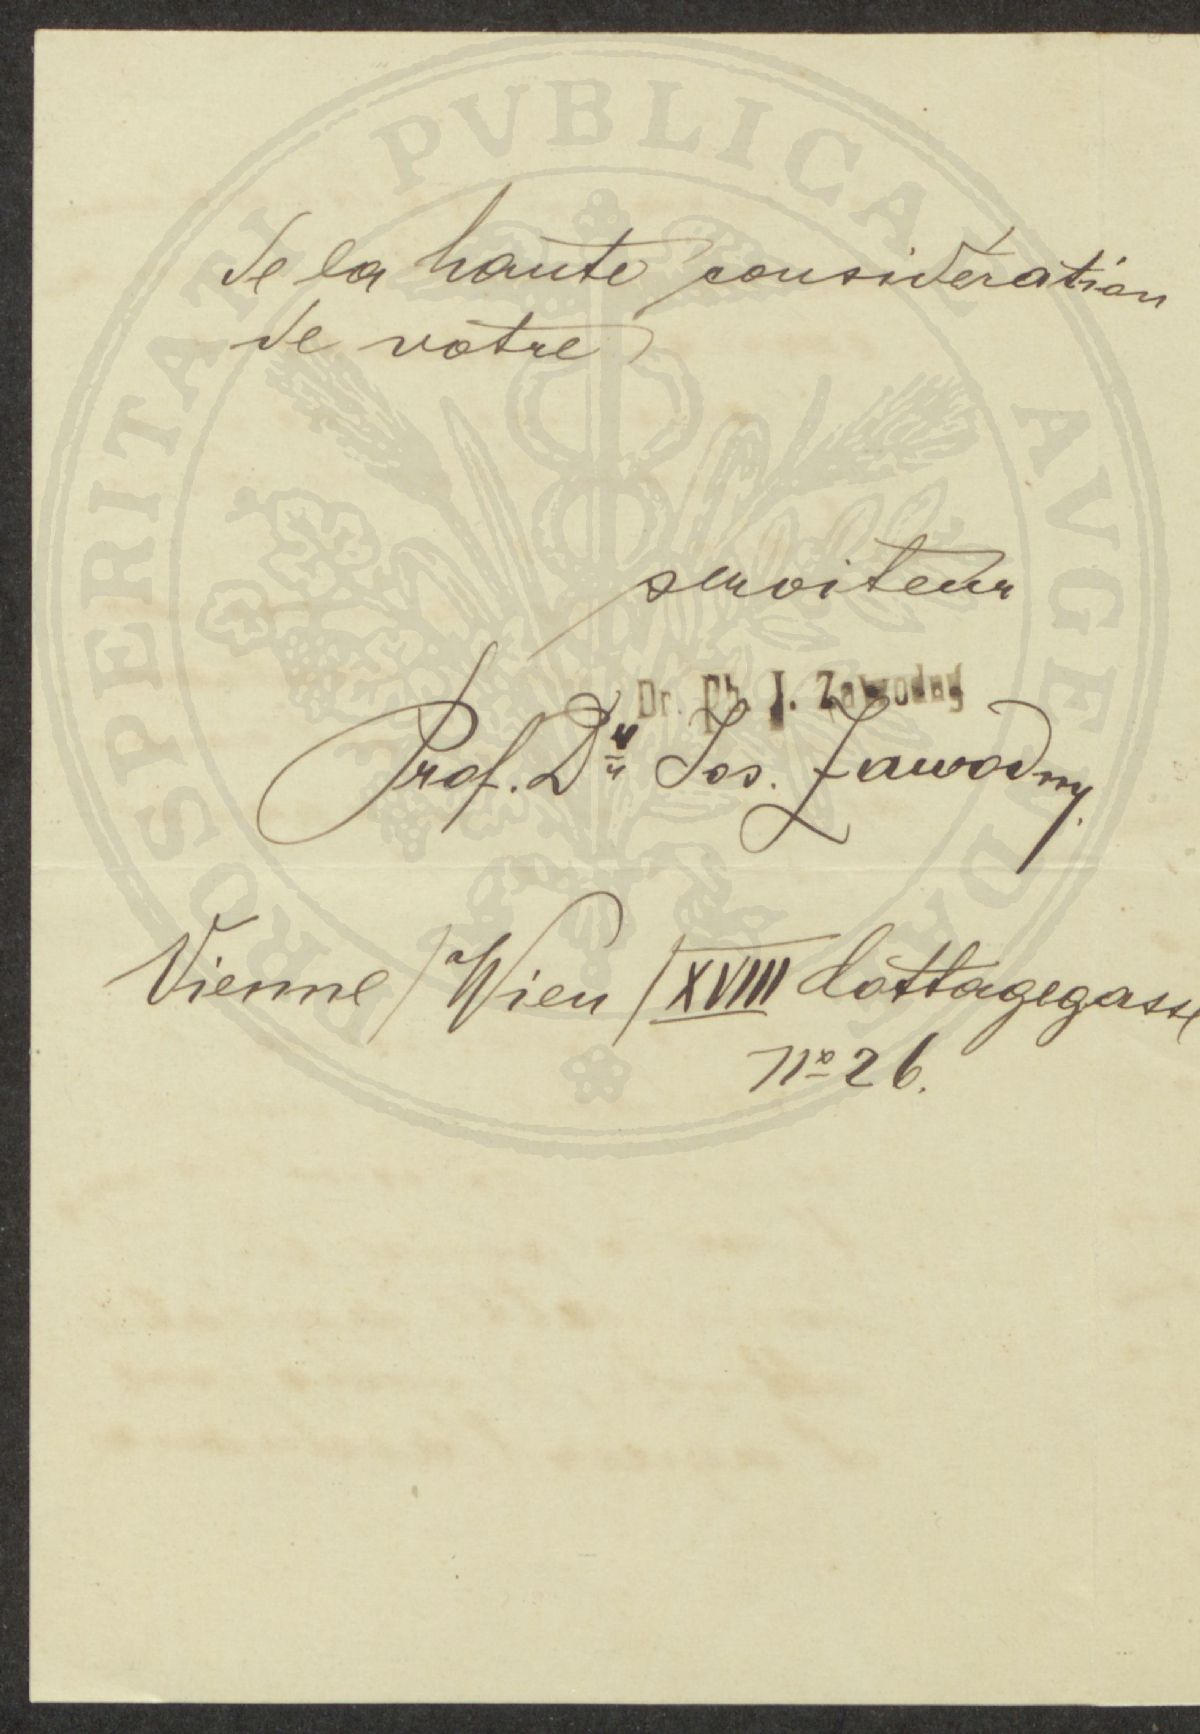 de la haute considération
de votre
serviteur
Dr. Ph. J. Zawodny
Prof. Dr Jos. Zawodny.
Vienne / Wien / XVIII Cottagegasse
No 26.
PROSPERITATI PVBLICAE AVGENDAE